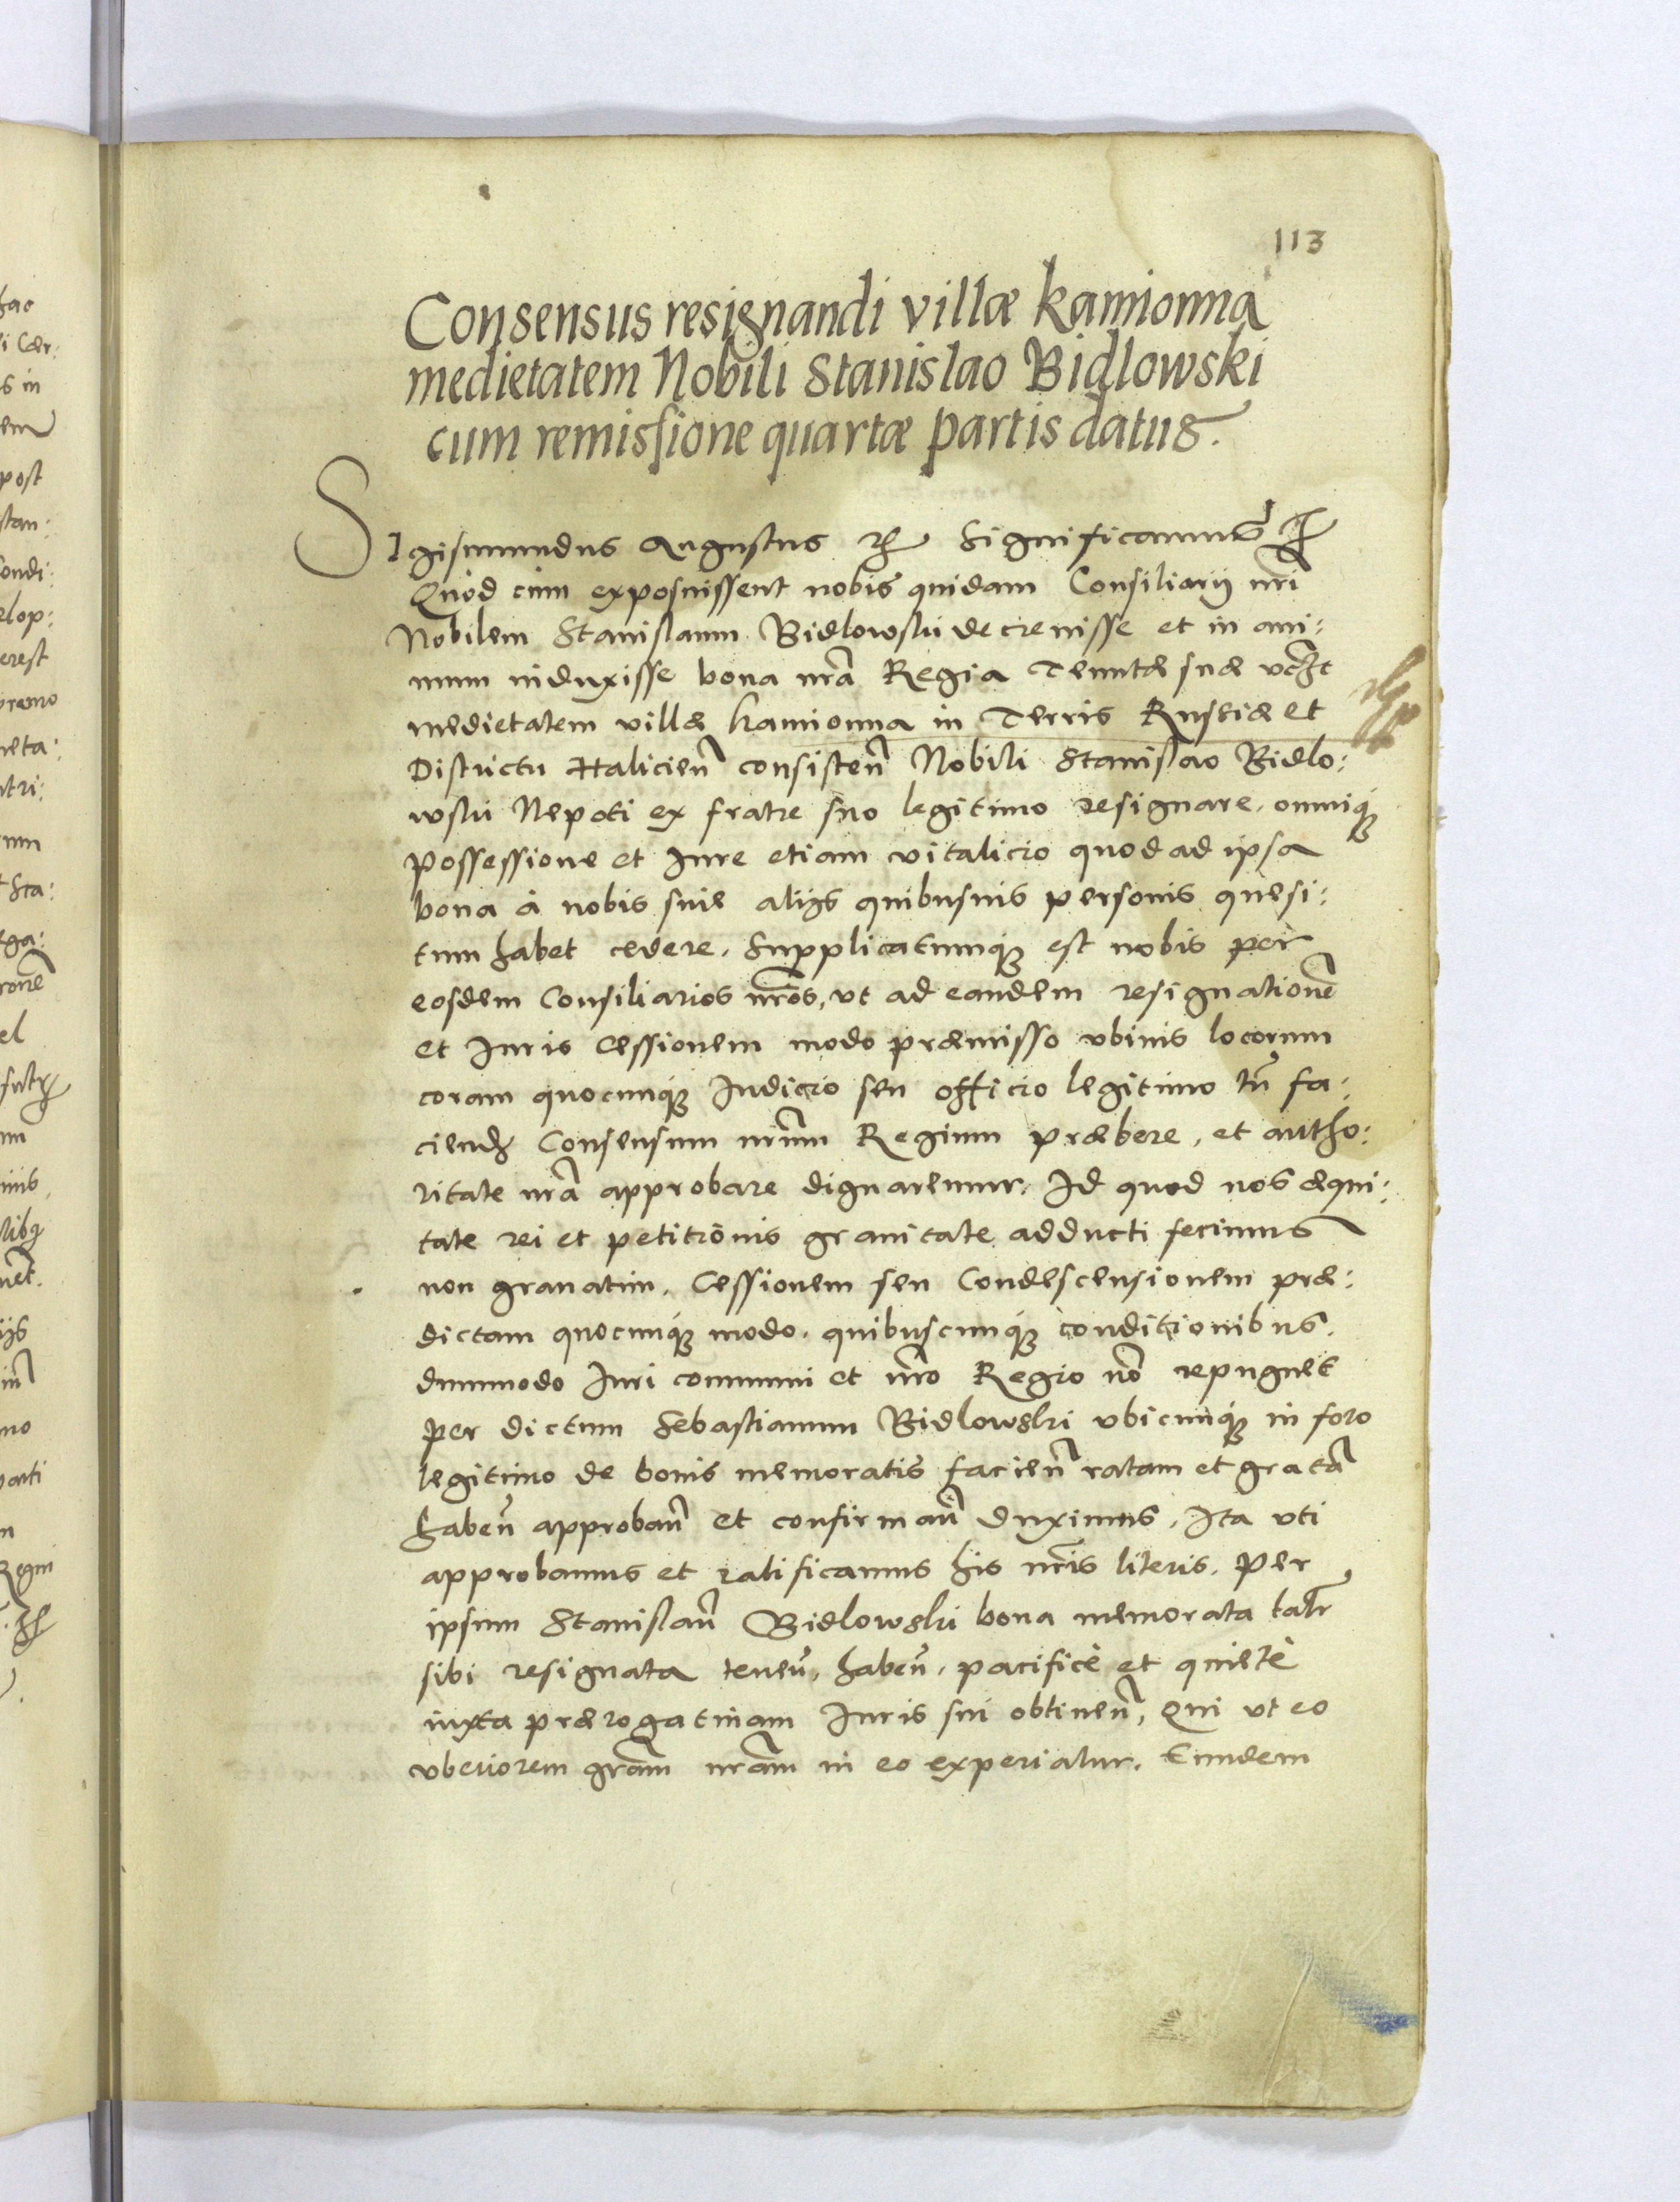 113
Consensus resignandi villæ Kamionna
medietatem Nobili Stanislao Bidlowski
cum remissione quartæ partis datus.
Sigismundus Augustus Significamus
Quod cùm exposuissent nobis quidam Consiliarij nri
Nobilem Stanislaum Bidlowski decreuisse et in ani:
mum induxisse bona nra Regia Tenutæ suæ vczt
medietatem villæ Kamionna in Terris Russiæ et
Districtu Halicien consisten Nobili Stanislao Bidlo:
wski Nepoti ex fratre suo legitimo resignare, omnique
possessione et Iure etiam vitalicio quod ad ipsa
bona à nobis siue alijs quibusuis personis quesi:
tum habet cedere. Supplicatumque est nobis per
eosdem Consiliarios nros, vt ad eandem resignatione
et Iuris Cessionem modo præmisso vbiuis locorum
coram quocunque Iudicio seu officio legitimo tn fa:
ciend Consensum nrum Regium præbere, et autho:
ritate nra approbare dignaremur. Id quod nos æqui:
tate rei et petitionis grauitate adducti fecimus
non grauatim. Cessionem seu Condescensionem præ:
dictam quocunque modo, quibuscunque conditionibus,
dummodo Iuri communi et nro Regio no repugnet
per dictum Sebastianum Bidlowski vbicunque in foro
legitimo de bonis memoratis facien ratam et grata
haben approban et confirman duximus, Ita vti
approbamus et ratificamus his nris literis. Per
ipsum Stanislau Bidlowski bona memorata talr
sibi resignata tenen, haben, pacificè et quietè
iuxta prærogatiuam Iuris sui obtinen, Qui vt eo
vberiorem gram nram in eo experiatur. Eundem